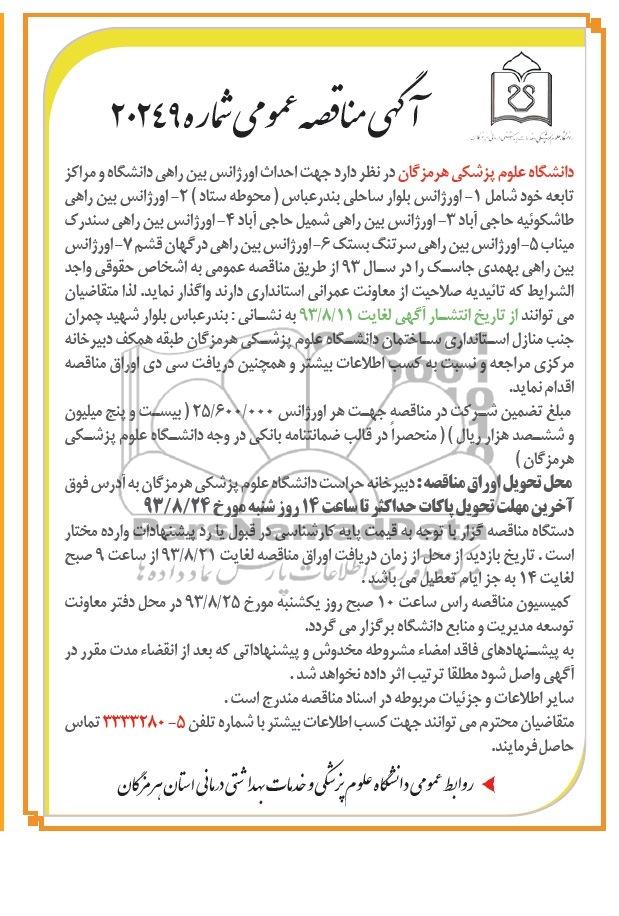 آگهی مناقصه عمومی شماره ۲۰۲۴۹
دانشگاه علوم پزشکی هرمزگان در نظر دارد جهت احداث اورژانس بین راهی دانشگاه و مراکز
تابعه خود شامل ۱- اورژانس بلوار ساحلی بندرعباس ( محوطه ستاد ) ۲- اورژانس بین راهی
طاشکوئیه حاجی آباد ۳- اورژانس بین راهی شمیل حاجی آباد ۴- اورژانس بین راهی سندرک
میناب ۵- اورژانس بین راهی سرتنگ بستک ۶- اورژانس بین راهی درگهان قشم ۷- اورژانس
بین راهی بهمدی جاسک را در سال ۹۳ از طریق مناقصه عمومی به اشخاص حقوقی واجد
الشرایط که تائیدیه صلاحیت از معاونت عمرانی استانداری دارند واگذار نماید. لذا متقاضیان
می توانند از تاریخ انتشار آگهی لغایت ۹۳/۸/۱۱ به نشانی : بندرعباس بلوار شهید چمران
جنب منازل استانداری ساختمان دانشگاه علوم پزشکی هرمزگان طبقه همکف دبیرخانه
مرکزی مراجعه و نسبت به کسب اطلاعات بیشتر و همچنین دریافت سی دی اوراق مناقصه
اقدام نماید.
مبلغ تضمین شرکت در مناقصه جهت هر اورژانس ۲۵/۶۰۰/۰۰۰ ( بیست و پنج میلیون
و ششصد هزار ریال ) ( منحصراً در قالب ضمانتنامه بانکی در وجه دانشگاه علوم پزشکی
هرمزگان )
محل تحویل اوراق مناقصه : دبیرخانه حراست دانشگاه علوم پزشکی هرمزگان به آدرس فوق
آخرین مهلت تحویل پاکات حداکثر تا ساعت ۱۴ روز شنبه مورخ ۹۳/۸/۲۴
دستگاه مناقصه گزار با توجه به قیمت پایه کارشناسی در قبول یا رد پیشنهادات وارده مختار
است . تاریخ بازدید از محل از زمان دریافت اوراق مناقصه لغایت ۹۳/۸/۲۱ از ساعت ۹ صبح
لغایت ۱۴ به جز ایام تعطیل می باشد .
کمیسیون مناقصه راس ساعت ۱۰ صبح روز یکشنبه مورخ ۹۳/۸/۲۵ در محل دفتر معاونت
توسعه مدیریت و منابع دانشگاه برگزار می گردد.
به پیشنهادهای فاقد امضاء مشروطه مخدوش و پیشنهاداتی که بعد از انقضاء مدت مقرر در
آگهی واصل شود مطلقا ترتیب اثر داده نخواهد شد .
سایر اطلاعات و جزئیات مربوطه در اسناد مناقصه مندرج است .
متقاضیان محترم می توانند جهت کسب اطلاعات بیشتر با شماره تلفن ۵- ۳۳۳۳۲۸۰ تماس
حاصل فرمایند.
روابط عمومی دانشگاه علوم پزشکی و خدمات بهداشتی درمانی استان هرمزگان